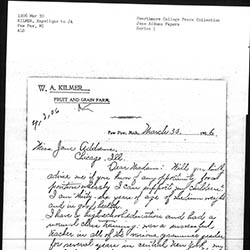 1896 Mar 30
KILMER,
Paw Paw, MI
ALS
Swarthmore College Peace Collection
Jane Addams Papers
Series 1
W. A. KILMER,
FRUIT AND GRAIN FARM.
Paw Paw, Mich., March 30, 1896.
Miss Jane Addams,
Chicago Ill.
Dear Madam: Will you kindly
advise me if you know of any opportunity for a
position whereby I can support my children?
I am thirty-six years of age of medium weight
and in good health.
I have a high school education and had a
normal class training; was a successful
teacher in all of the primary, grammar grades
for several years in central New York, my